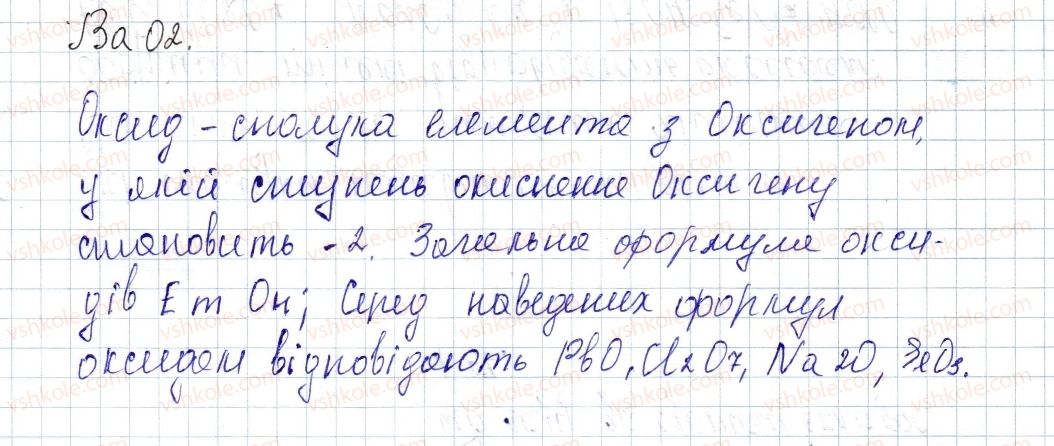 BaO2.
Оксид - сполука елемента з Оксигеном,
у якій ступень окиснення Оксигену
становить -2. Загальна формула окси-
дів EmOн; Серед наведених формул
оксидам відповідають PbO, Cl2O7, Na2O,